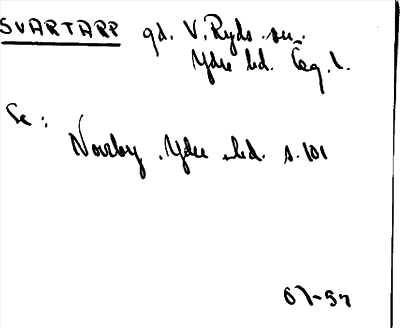 SVARTARP gd. V. Ryds sn.
Ydre hd. Ög. l.
Se:
Norrby, Ydre hd. s. 101